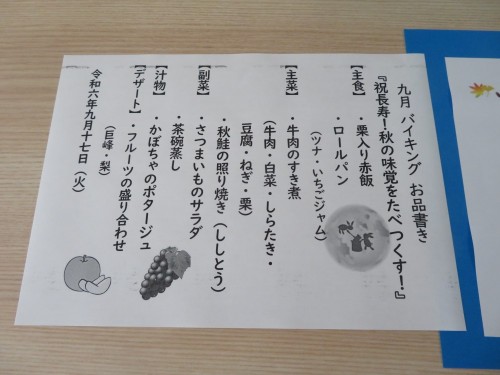 九月 バイキング お品書き
『祝長寿！秋の味覚をたべつくす！』
【主食】 ・栗入り赤飯
・ロールパン
（ツナ・いちごジャム）
【主菜】 ・牛肉のすき煮
（牛肉・白菜・しらたき・
豆腐・ねぎ・栗）
・秋鮭の照り焼き（ししとう）
【副菜】 ・さつまいものサラダ
・茶碗蒸し
【汁物】 ・かぼちゃのポタージュ
【デザート】 ・フルーツの盛り合わせ
（巨峰・梨）
令和六年九月十七日（火）